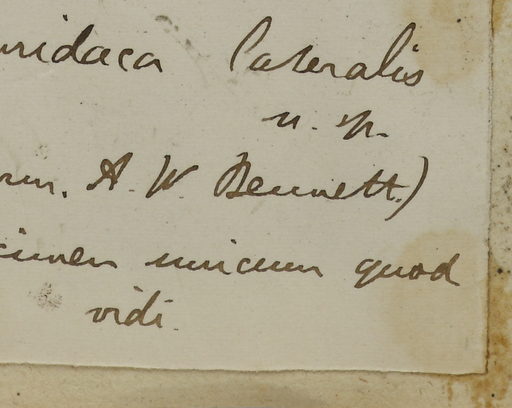 uridaca lateralis
n. sp.
rm. A. W. Bennett.)
cimen unicum quod
vidi.